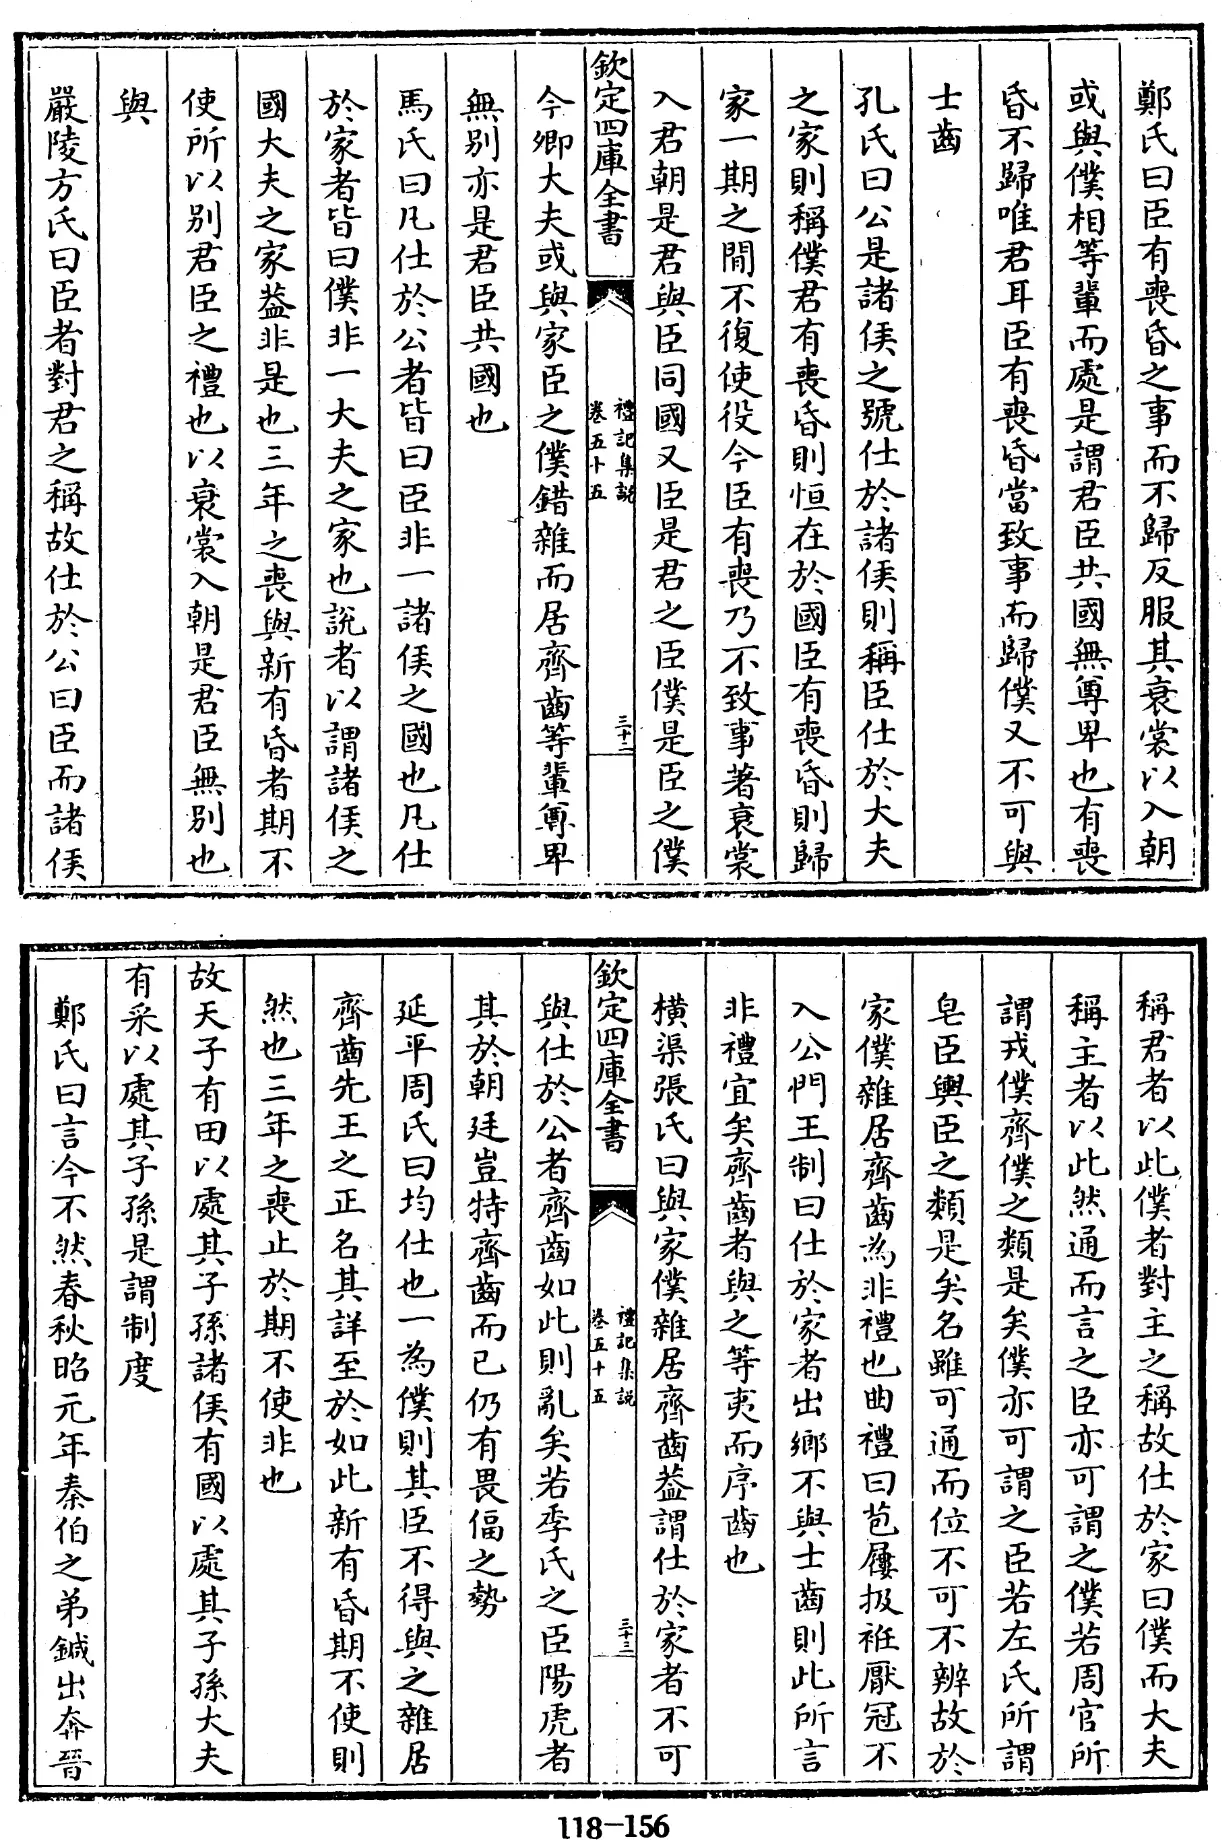 鄭氏曰臣有喪昏之事而不歸反服其衰裳以入朝
或與僕相等輩而處是謂君臣共國無尊卑也有喪
昏不歸唯君耳臣有喪昏當致事而歸僕又不可與
士齒
孔氏曰公是諸侯之號仕於諸侯則稱臣仕於大夫
之家則稱僕君有喪昏則恒在於國臣有喪昏則歸
家一期之間不復使役今臣有喪乃不致事著衰裳
入君朝是君與臣同國又臣是君之臣僕是臣之僕
欽定四庫全書
禮記集說
卷五十五
三十二
今卿大夫或與家臣之僕錯雜而居齊齒等輩尊卑
無別亦是君臣共國也
馬氏曰凡仕於公者皆曰臣非一諸侯之國也凡仕
於家者皆曰僕非一大夫之家也說者以謂諸侯之
國大夫之家葢非是也三年之喪與新有昏者期不
使所以別君臣之禮也以衰裳入朝是君臣無別也
與
嚴陵方氏曰臣者對君之稱故仕於公曰臣而諸侯
稱君者以此僕者對主之稱故仕於家曰僕而大夫
稱主者以此然通而言之臣亦可謂之僕若周官所
謂戎僕齊僕之類是矣僕亦可謂之臣若左氏所謂
皂臣輿臣之類是矣名雖可通而位不可不辨故於
家僕雜居齊齒為非禮也曲禮曰苞屨扱衽厭冠不
入公門王制曰仕於家者出鄉不與士齒則此所言
非禮宜矣齊齒者與之等夷而序齒也
橫渠張氏曰與家僕雜居齊齒葢謂仕於家者不可
欽定四庫全書
禮記集說
卷五十五
三十三
與仕於公者齊齒如此則亂矣若季氏之臣陽虎者
其於朝廷豈特齊齒而已仍有畏偪之勢
延平周氏曰均仕也一為僕則其臣不得與之雜居
齊齒先王之正名其詳至於如此新有昏期不使則
然也三年之喪止於期不使非也
故天子有田以處其子孫諸侯有國以處其子孫大夫
有采以處其子孫是謂制度
鄭氏曰言今不然春秋昭元年秦伯之弟鍼出奔晉
118-156